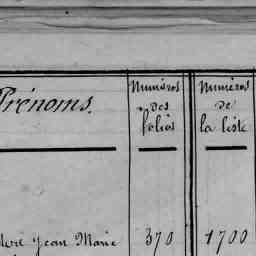 Prénoms.
Numéros
des
folios
Numéros
de
la liste
Jean Marie
370
1700